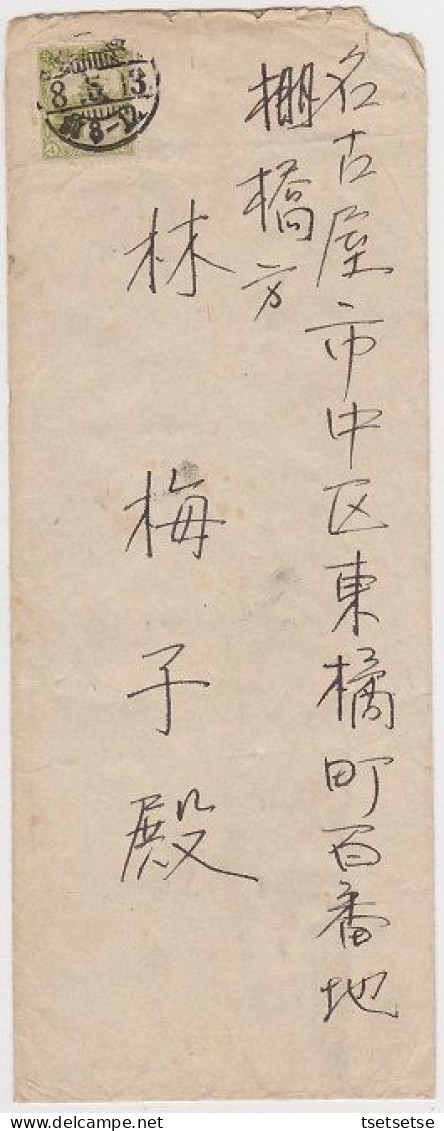 名古屋市中区東橘町百番地
棚橋方
林梅子殿
8.5.13
8-12
tsetsetse